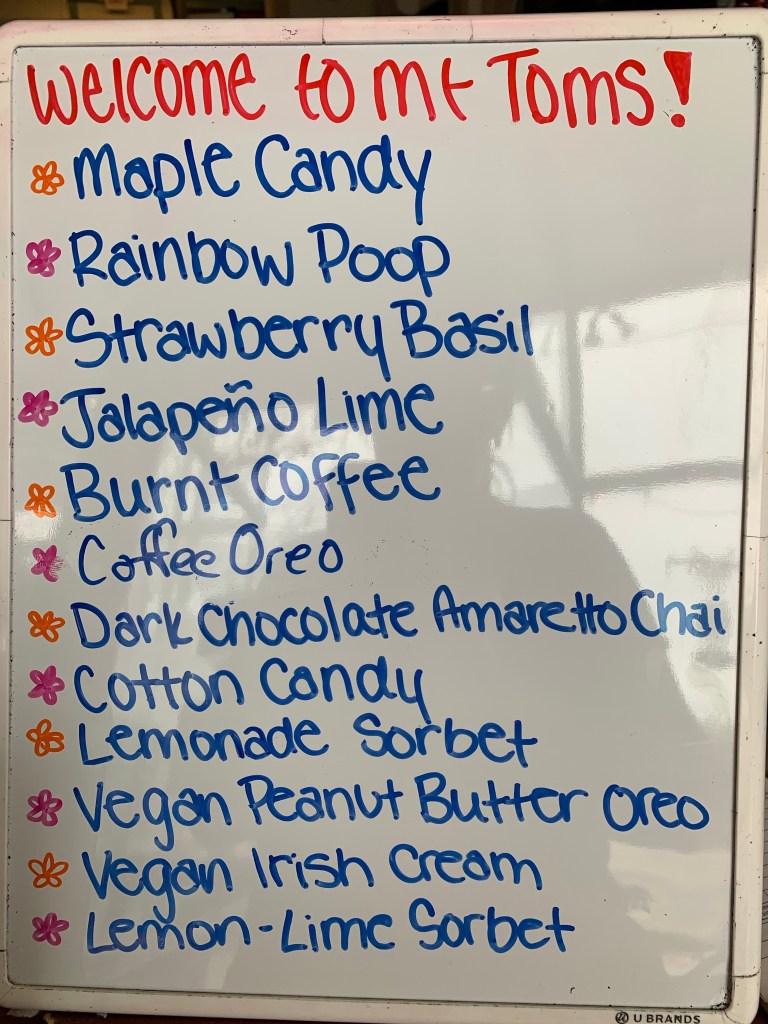 Welcome to mt Toms!
Maple Candy
Rainbow Poop
Strawberry Basil
Jalapeño Lime
Burnt Coffee
Coffee Oreo
Dark Chocolate Amaretto Chai
Cotton Candy
Lemonade Sorbet
Vegan Peanut Butter Oreo
Vegan Irish Cream
Lemon-Lime Sorbet
U BRANDS